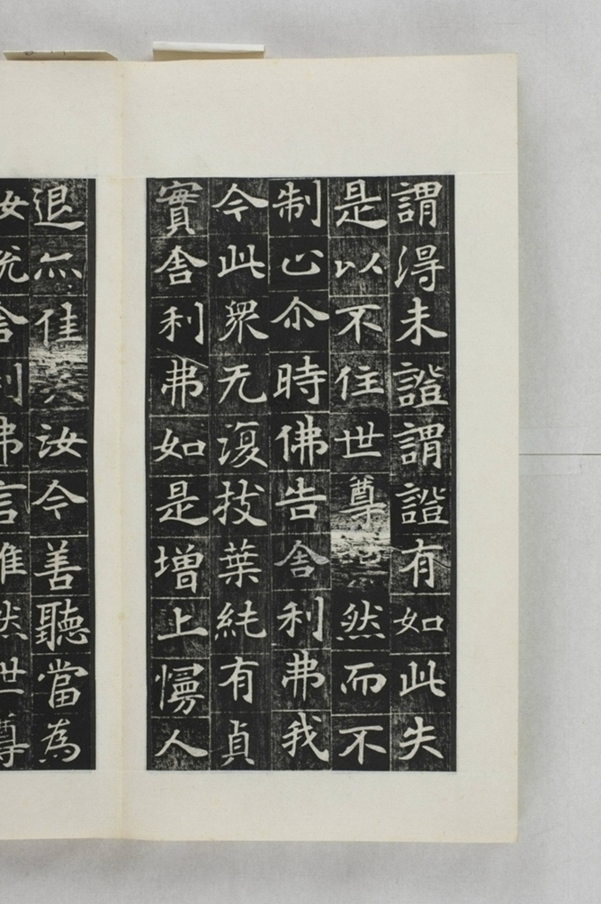 謂淂未證謂證有如此失
是以不住世尊世然而不
制止尒時佛告舍利弗我
今此衆无復枝葉純有貞
實舍利弗如是增上慢人
退亦佳矣汝今善聽當為
汝說舍利弗言唯然世尊